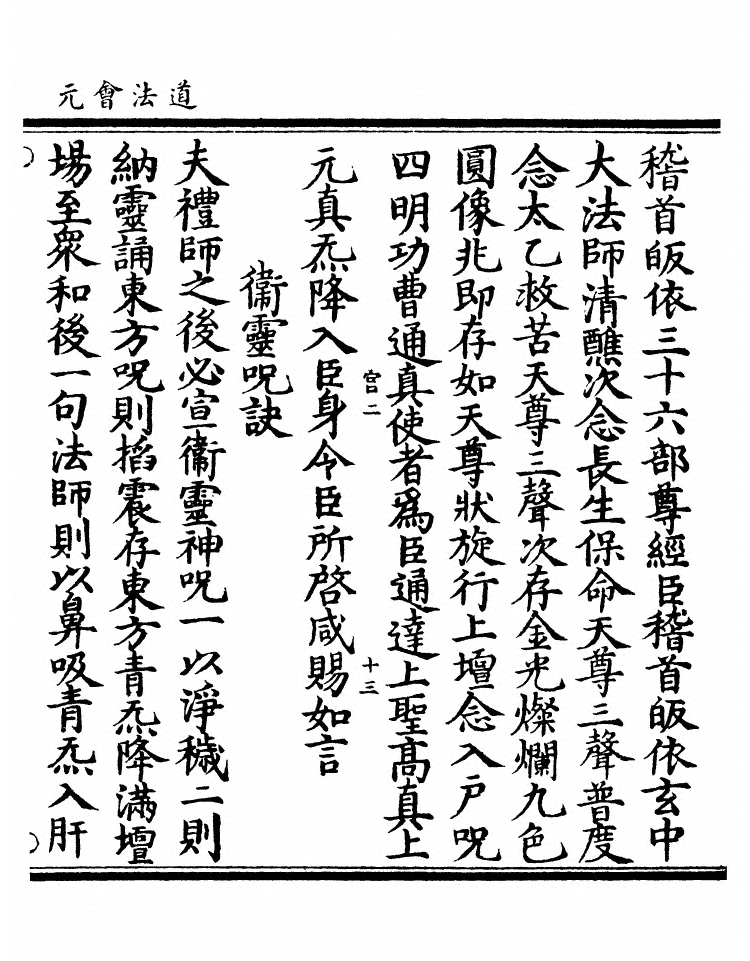 道法會元
稽首皈依三十六部尊經臣稽首皈依玄中
大法師清醮次念長生保命天尊三聲普度
念太乙救苦天尊三聲次存金光燦爛九色
圓像兆即存如天尊狀旋行上壇念入戶呪
四明功曹通真使者爲臣通達上聖高真上
宮二
十三
元真炁降入臣身令臣所啓咸賜如言
衞靈呪訣
夫禮師之後必宣衞靈神呪一以淨穢二則
納靈誦東方呪則搯震存東方青炁降滿壇
場至衆和後一句法師則以鼻吸青炁入肝